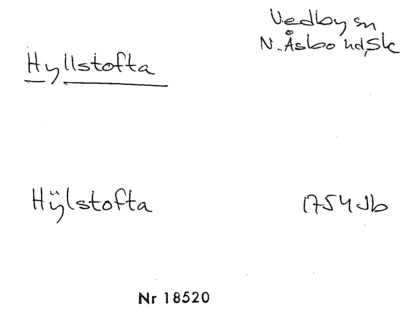 Vedby sn
N. Åsbo hd, Sk
Hyllstofta
Hÿlstofta 1754 Jb
Nr 18520